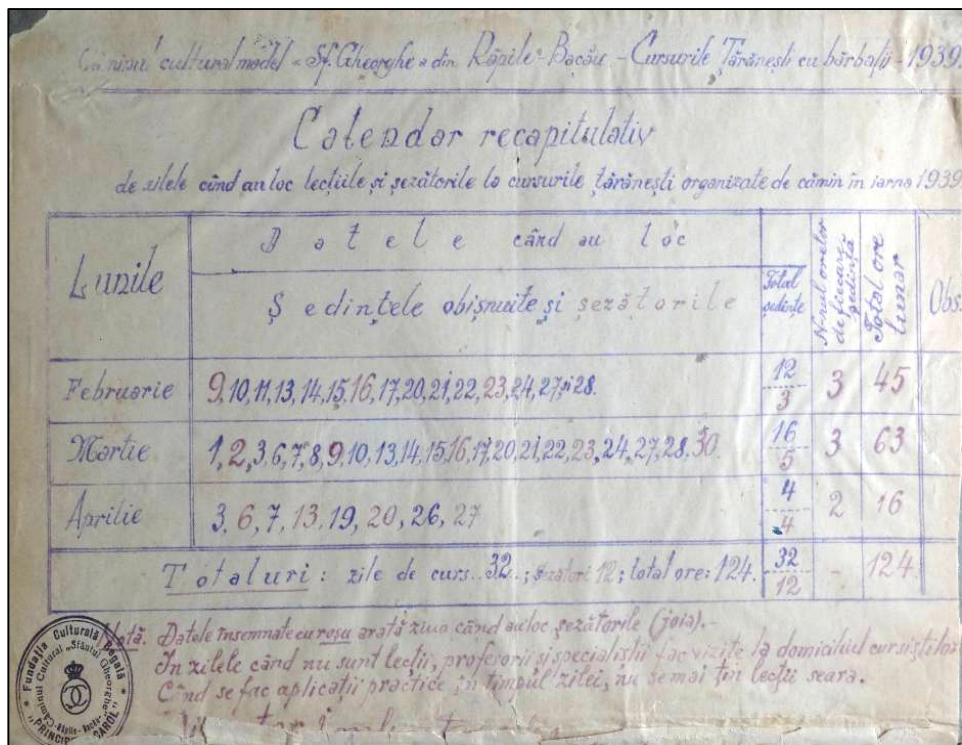 Căminul cultural model „Sf. Gheorghe" din Răpile-Bacău - Cursurile Țărănești cu bărbații - 1939.
Calendar recapitulativ
de zilele când au loc lecțiile și șezătorile la cursurile țărănești organizate de cămin în iarna 1939.
Lunile
Datele când au loc
Ședințele obișnuite și șezătorile
Total ședințe
N-rul orelor de fiecare ședință
Total ore lunar
Obs.
Februarie 9,10,11,13,14,15,16,17,20,21,22,23,24,27 și 28. 12 3 3 45
Martie 1,2,3,6,7,8,9,10,13,14,15,16,17,20,21,22,23,24,27,28,30. 16 5 3 63
Aprilie 3,6,7,13,19,20,26,27 4 4 2 16
Totaluri: zile de curs..32..; șezători 12; total ore: 124. 32 12 - 124.
Notă. Datele însemnate cu roșu arată ziua când au loc șezătorile (joia).-
În zilele când nu sunt lecții, profesorii și specialiștii fac vizite la domiciliul cursiștilor
Când se fac aplicații practice în timpul zilei, nu se mai țin lecții seara.
Fundația Culturală Regală
"PRINCIPELE CAROL"
Căminul Cultural „Sfântul Gheorghe"
Răpile-Bacău